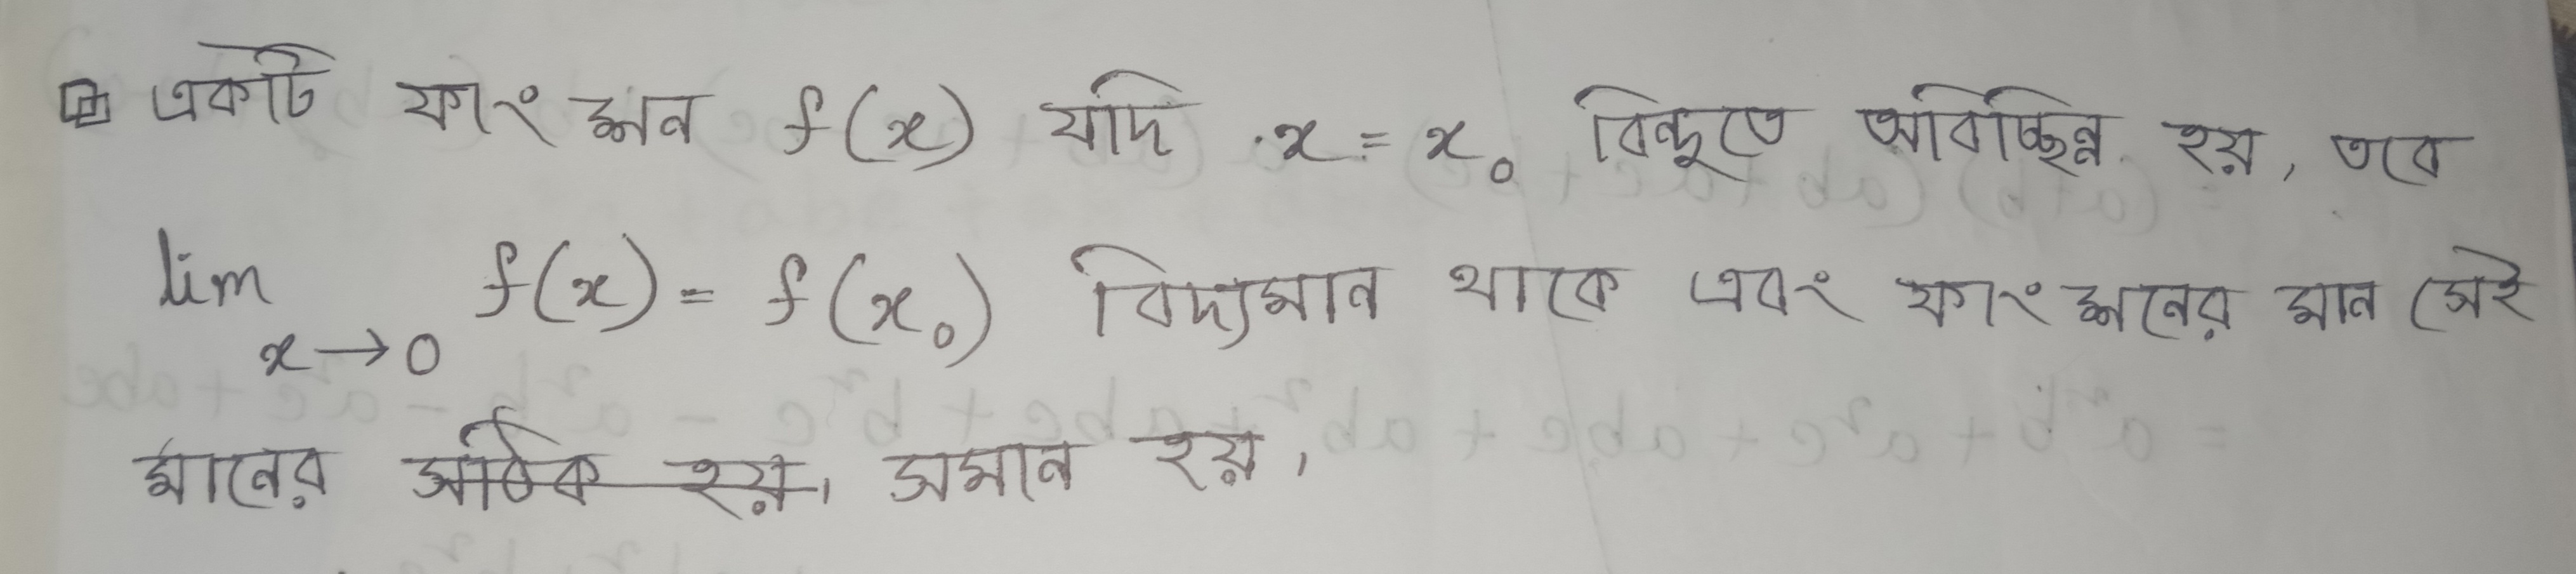 একটি ফাংশন f(x) যদি x = x₀ বিন্দুতে অবিচ্ছিন্ন হয়, তবে
lim x→0 f(x) = f(x₀) বিদ্যমান থাকে এবং ফাংশনের মান সেই
মানের সঠিক হয়। সমান হয়।